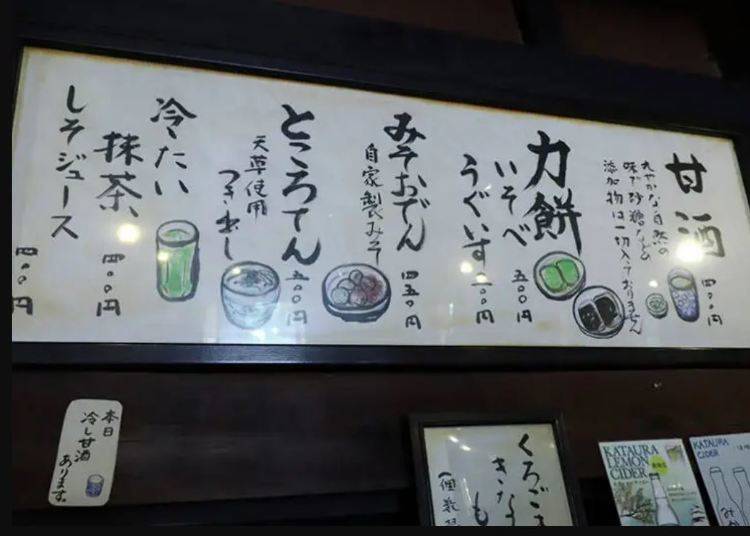 甘酒
丸やかな自然の
味で砂糖など
添加物は一切入っておりません
四〇〇円
力餅
いそべ
五〇〇円
うぐいす
五〇〇円
みそおでん
自家製みそ
四五〇円
ところてん
天草使用
つき出し
五〇〇円
冷たい
抹茶
四〇〇円
しそジュース
四〇〇円
本日
冷し甘酒
あります。
くろごま
きな
も
KATAURA
LEMON
CIDER
KATAURA
CIDER